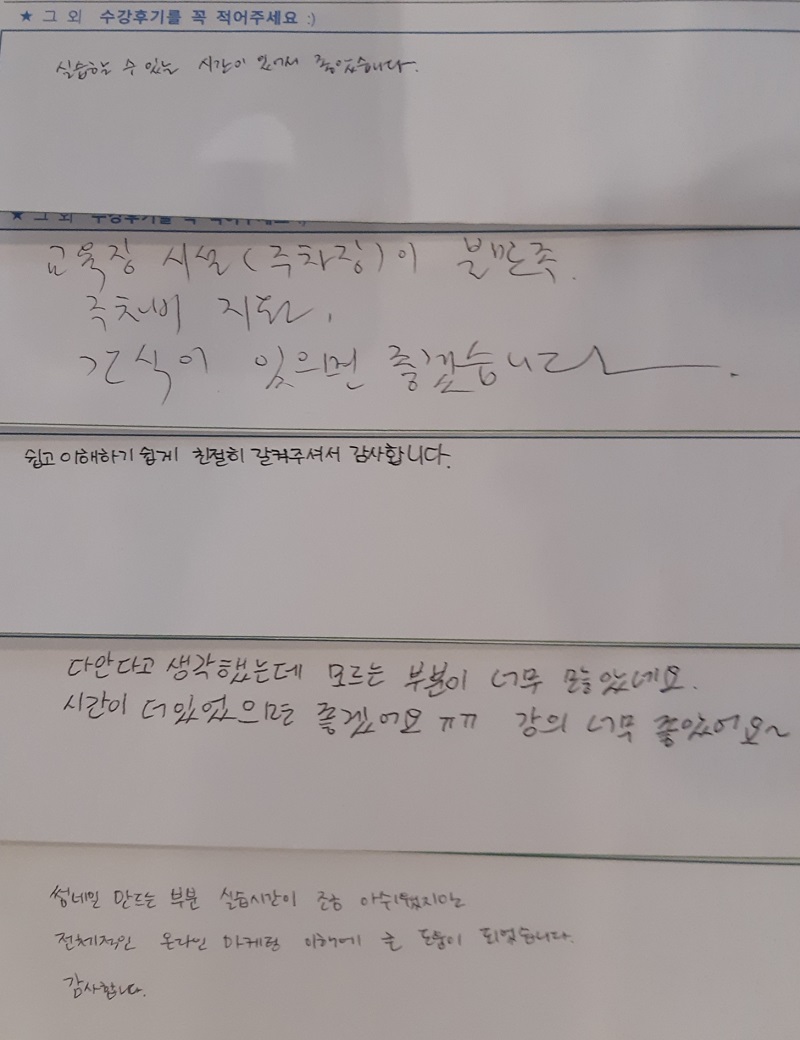 ★ 그 외 수강후기를 꼭 적어주세요 :)
실습하는 수 있는 시간이 있어서 좋았습니다.
★ 그 외 수강후기를 꼭 적어주세요 :)
교육장 시설(주차장)이 불만족.
주차비 지원,
간식이 있으면 좋겠습니다.
쉽고 이해하기 쉽게 친절히 갈켜주셔서 감사합니다.
다안다고 생각했는데 모르는 부분이 너무 많았네요.
시간이 더있었으면 좋겠어요 ㅠㅠ 강의 너무 좋았어요~
썸네일 만드는 부분 실습시간이 조금 아쉬웠지만
전체적인 온라인 마케팅 이해에 큰 도움이 되었습니다.
감사합니다.